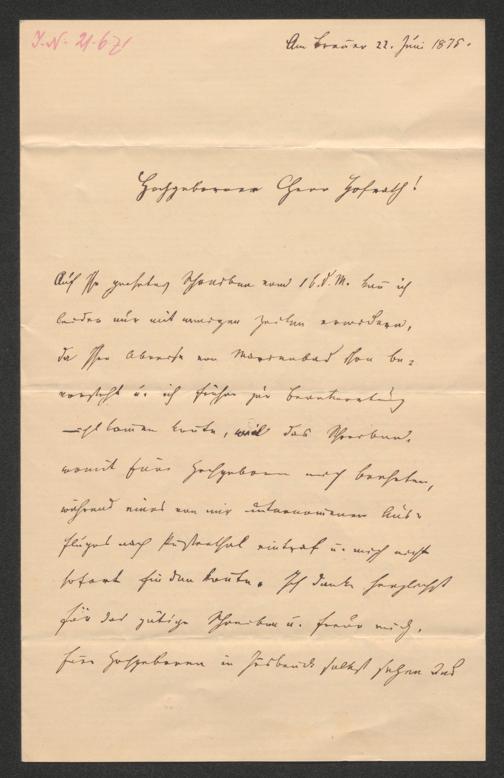 I.N. 21.671
Am Brenner 22. Juni 1875.
Hochgeborner Herr Hofrath!
Auf Ihr geehrtes Schreiben vom 16. d. M. kan ich
leider nur mit wenigen Zeilen erwidern,
da Ihre Abreise von Marienbad schon be-
vorsteht u. ich früher zur Beantwortung
nicht kommen konte, weil das Schreiben,
womit Euer Hochgeboren mich beehrten,
während eines von mir unternomenen Aus-
fluges nach Pusterthal eintraf u. mich nicht
sofort finden konte. Ich danke herzlichst
für das gütige Schreiben u. freue mich,
Euer Hochgeboren in Insbruck selbst sehen und